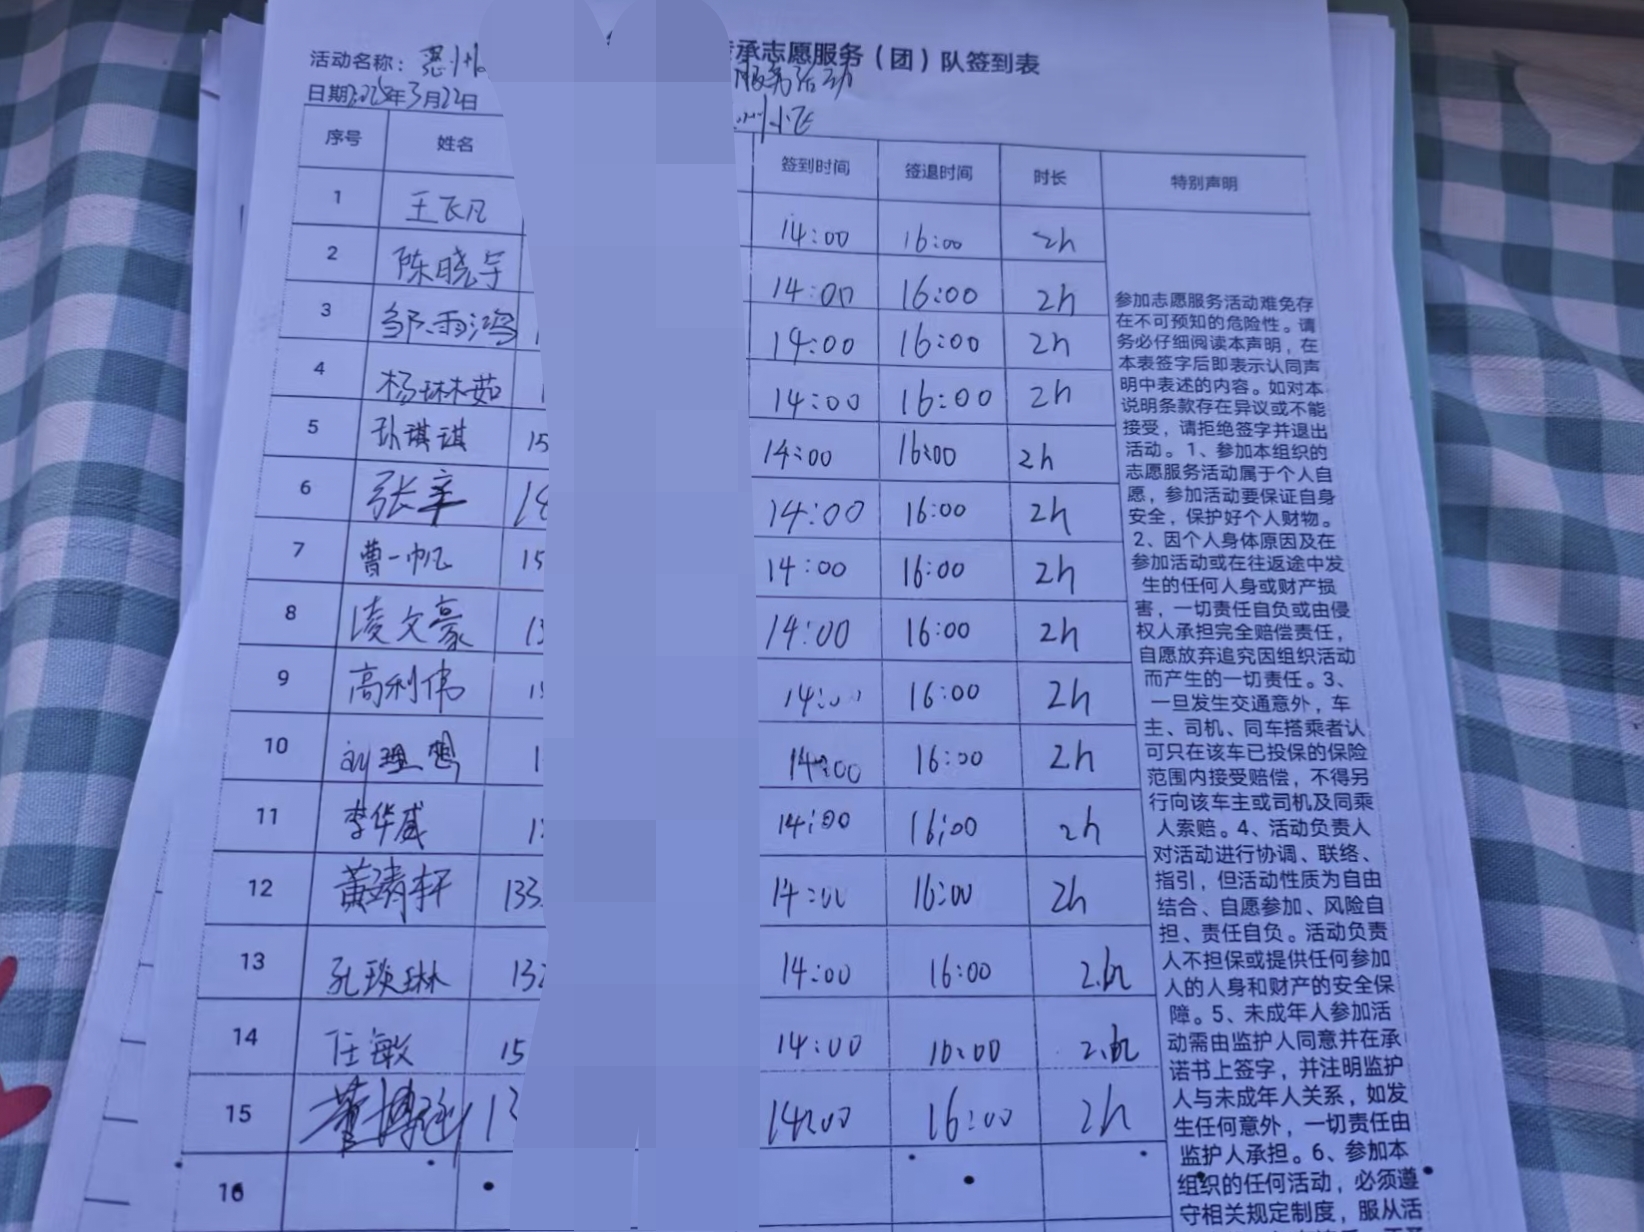 承志愿服务（团）队签到表
活动名称：惠州
服务活动
日期2025年3月22日
小飞
序号 姓名 签到时间 签退时间 时长 特别声明
1 王飞凡 14:00 16:00 2h
2 陈晓宇 14:00 16:00 2h
3 邹雨鸿 14:00 16:00 2h
4 杨琳茹 14:00 16:00 2h
5 孙琪琪 15 14:00 16:00 2h
6 张辛 14:00 16:00 2h
7 曹一帆 15 14:00 16:00 2h
8 凌文豪 14:00 16:00 2h
9 高利伟 14:00 16:00 2h
10 刘理想 14:00 16:00 2h
11 李华盛 14:00 16:00 2h
12 黄靖轩 133 14:00 16:00 2h
13 孔琰琳 132 14:00 16:00
14 任敏 15 14:00 16:00
15 董博涵 14:00 16:00 2h
16
参加志愿服务活动难免存
在不可预知的危险性。请
务必仔细阅读本声明，在
本表签字后即表示认同声
明中表述的内容。如对本
说明条款存在异议或不能
接受，请拒绝签字并退出
活动。1、参加本组织的
志愿服务活动属于个人自
愿，参加活动要保证自身
安全，保护好个人财物。
2、因个人身体原因及在
参加活动或在往返途中发
生的任何人身或财产损
害，一切责任自负或由侵
权人承担完全赔偿责任，
自愿放弃追究因组织活动
而产生的一切责任。3、
一旦发生交通意外，车
主、司机、同车搭乘者认
可只在该车已投保的保险
范围内接受赔偿，不得另
行向该车主或司机及同乘
人索赔。4、活动负责人
对活动进行协调、联络、
指引，但活动性质为自由
结合、自愿参加、风险自
担、责任自负。活动负责
人不担保或提供任何参加
人的人身和财产的安全保
障。5、未成年人参加活
动需由监护人同意并在承
诺书上签字，并注明监护
人与未成年人关系，如发
生任何意外，一切责任由
监护人承担。6、参加本
组织的任何活动，必须遵
守相关规定制度，服从活